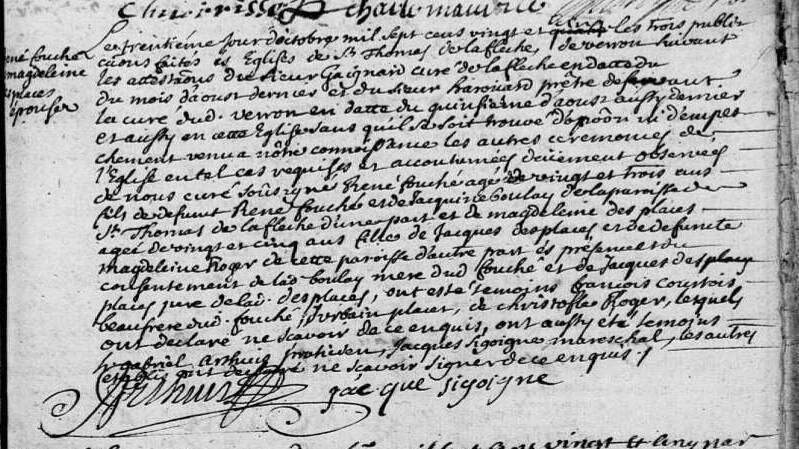 charle maurice
René fouché
magdeleine
des places
épouser
Le trentième jour d'octobre mil sept cens vingt et quatre les trois publi
cations faites és Eglises de St Thomas de la fleche, de verron suivant
les attestaons du sieur Gaignard curé de la fleche en datte du
du mois d'aoust dernier et du sieur harouard prêtre desservant
la cure dud. verron en datte du quinsieme d'aoust aussy dernier
et aussy en cette Eglise sans qu'il se soit trouvé d'opoôn ni d'empes
chement venu a nôtre connoissance les autres ceremonies de
l'Eglise en tel cas requises et accoutumées düement observées
de nous curé soussigné René fouché agé de vingt et trois ans
fils de defunt René fouché et de Jacquine boulay de la paroisse de
St Thomas de la fleche d'une part et de magdeleine des places
agée de vingt et cinq ans fille de Jacques des places et de defunte
magdeleine Roger de cette paroisse d'autre part és présence et du
consentement de lad boulay mere dud fouché et de Jacques des places
places pere de lad. des places, ont esté temoins francois courtois
beaufrere dud. fouché, urbain placet, de christofle Roger, lesquels
ont declaré ne scavoir de ce enquis, ont aussy été temoins
gabriel Arthuis praticien, Jacques sigoigne mareschal, les autres
ont declaré ne scavoir signer de ce enquis.
Arthuis jacque sigoigne
vingt et cinq par